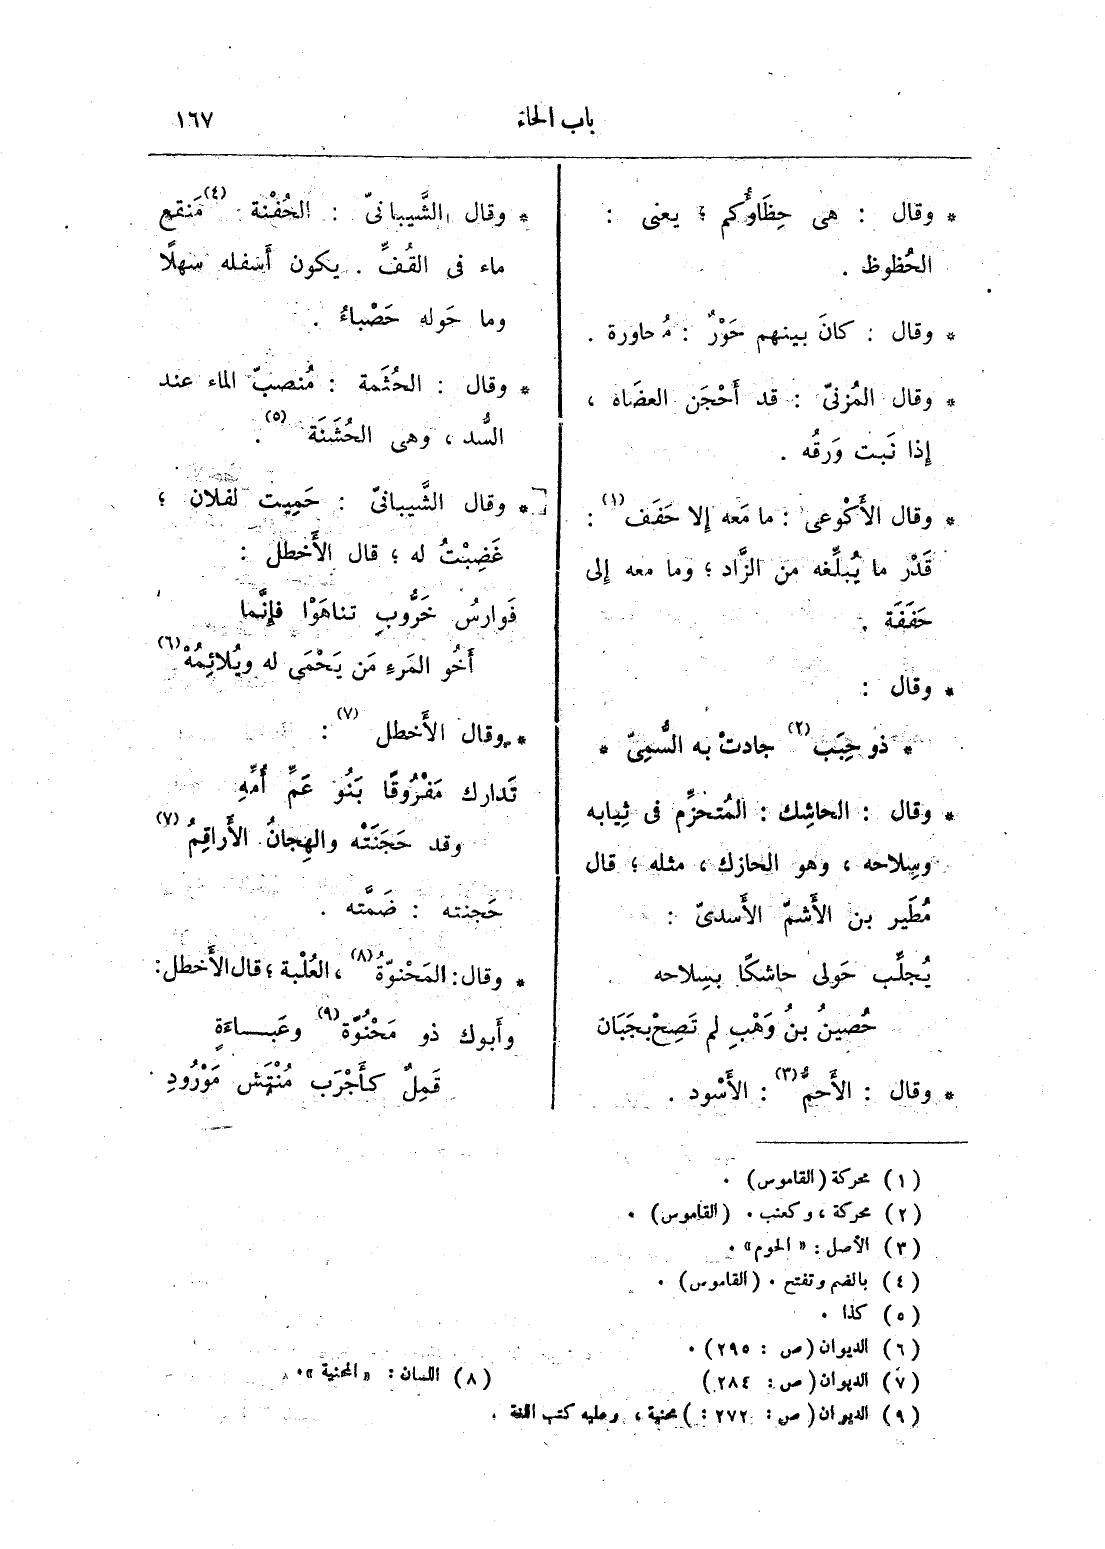 باب الحاء
١٦٧
* وقال : هى حِظَاؤُكم ؛ يعنى :
الحُظوظ .
* وقال : كانَ بينهم حَوْرٌ : مُحاورة .
* وقال المُزنىّ : قد أَحْجَن العضَاه ،
إذا نَبت وَرقُه .
* وقال الأَكْوعى : ما مَعه إلا حَفَف (١) :
قَدْر ما يُبلِّغه من الزَّاد ؛ وما معه إلى
حَفَفَة .
* وقال :
* ذو حِبَب (٢) جادتْ به السُّمِىّ *
* وقال : الحاشِك : المُتحزِّم فى ثِيابه
وسِلاحه ، وهو الحازك ، مثله ؛ قال
مُطَير بن الأَشمّ الأَسدىّ :
يُجلِّب حَولى حاشكًا بسِلاحه
حُصينُ بنُ وَهْبِ لم تَصِحْ بجَبَان
* وقال : الأَحمُّ (٣) : الأَسْود .
* وقال الشَّيبانىّ : الحُفْنة (٤) مَنقع
ماء فى القُفِّ . يكون أَسفله سهلًا
وما حَوله حَصْباءُ .
* وقال : الحُثَمة : مُنصبّ الماء عند
السُّد ، وهى الحُشَنَة (٥) .
* وقال الشَّيبانىّ : حَمِيت لفلان ؛
غَضِبْتُ له ؛ قال الأَخطل :
فَوارسُ خَرُّوبٍ تناهَوْا فإِنَّما
أَخُو المَرءِ مَن يَحْمَى له ويُلائِمُهْ (٦)
* وقال الأَخطل (٧) :
تَدارك مَفْرُوقًا بَنُو عَمِّ أُمِّهِ
وقد حَجَنَتْه والهِجانُ الأَراقِمُ (٧)
حَجنته : ضَمَّته .
* وقال : المَحْنوّةُ (٨) ، العُلْبة ؛ قال الأَخطل :
وأَبوك ذو مَحْنُوَّة (٩) وعَبـاءَةٍ
قَمِلٌ كأَجْرَب مُنْتَش مَوْرُودِ
(١) محركة (القاموس) .
(٢) محركة ، وكعنب . (القاموس) .
(٣) الأصل : « الحوم » .
(٤) بالضم وتفتح . (القاموس) .
(٥) كذا .
(٦) الديوان (ص : ٢٩٥) .
(٧) الديوان (ص : ٢٨٤)
(٨) اللسان : « المحنية » .
(٩) الديوان (ص : ٢٧٢ : ) محنية ، وعليه كتب اللغة .